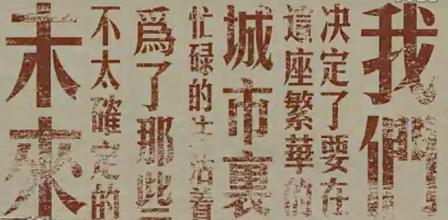 我們
决定了要在
這座繁華的
城市裏
忙碌的生活着
爲了那些
不太確定的
未來